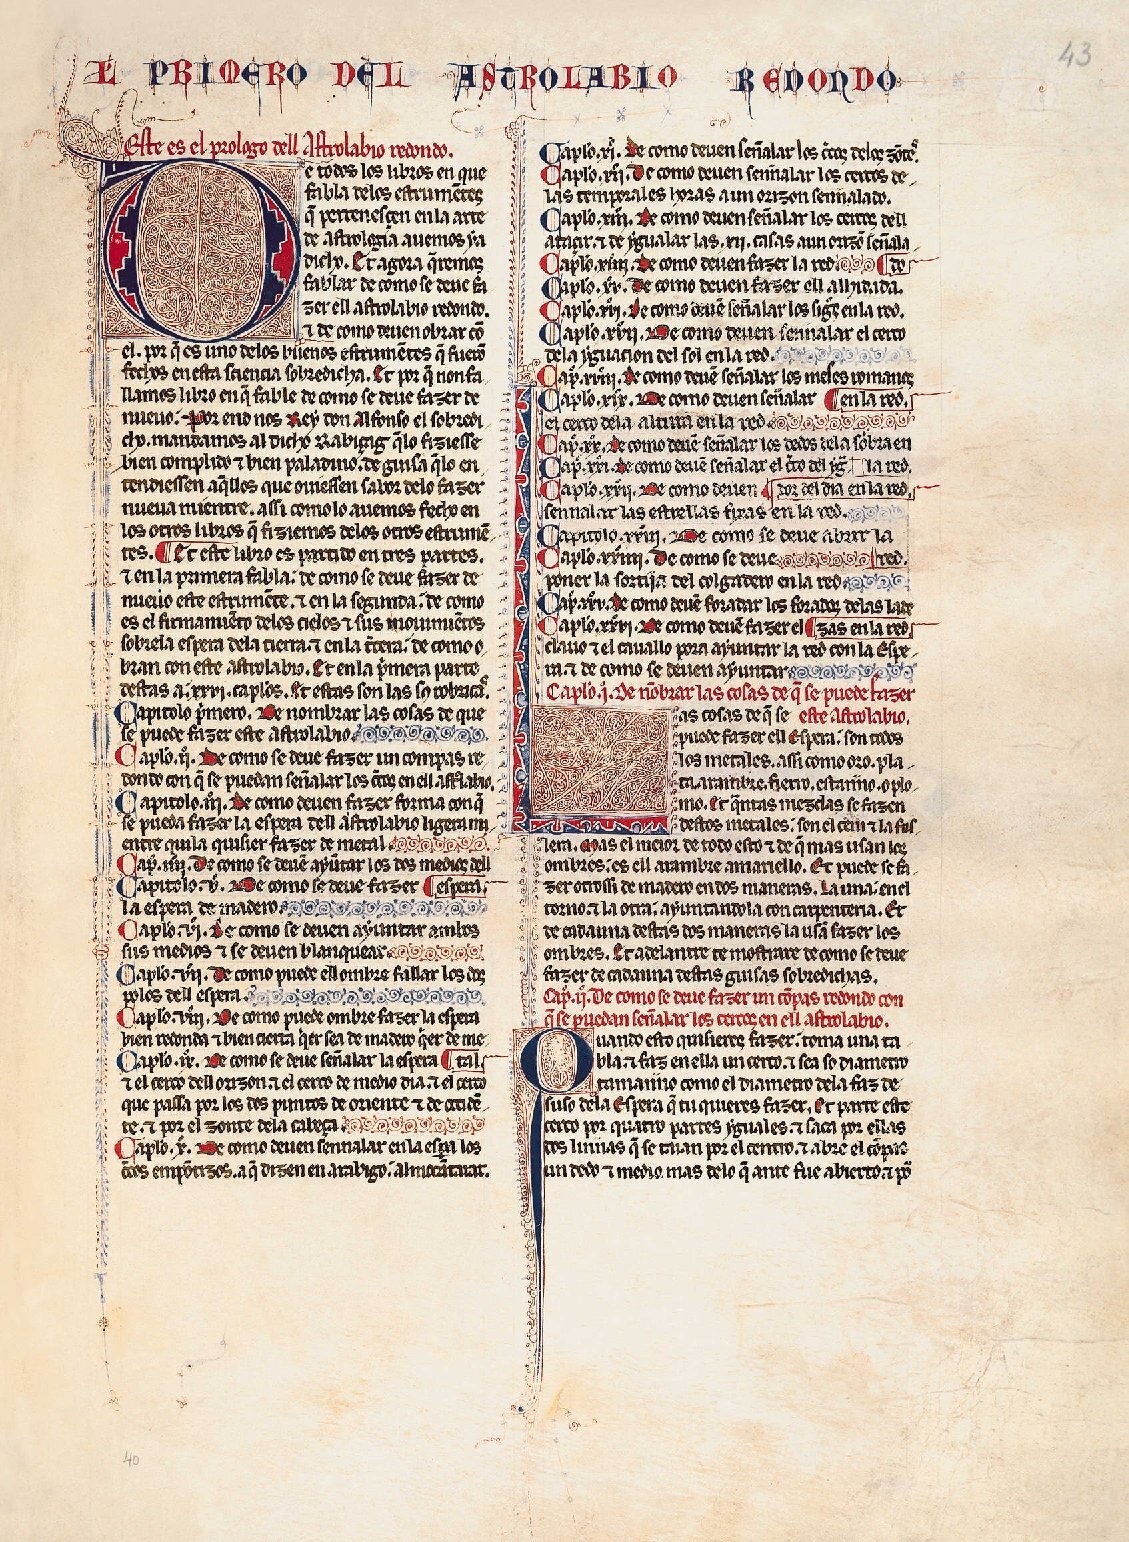 43
L PRIMERO DEL ASTROLABIO REDONDO
Este es el prologo dell Astrolabio redondo.
De todos los libros en que
fabla delos estrumẽtes
q̃ pertenesçen en la arte
de astrologia auemos ya
dicho. Et agora q̃remos
fablar de como se deue fa
zer ell astrolabio redondo.
⁊ de como deuen obrar cõ
el. por q̃ es uno delos buenos estrumẽtes q̃ fuerõ
fechos en esta sciencia sobredicha. Et por q̃ non fa
llamos libro en q̃ fable de como se deue fazer de
nueuo. Por end nos Rey don Alfonso el sobredi
cho. mandamos al dicho Rabiçag q̃lo fiziesse
bien complido ⁊ bien paladino. de guisa q̃lo en
tendiessen aq̃llos que ouiessen sabor delo fazer
nueua mientre. assi como lo auemos fecho en
los otros libros q̃ fiziemos delos otros estrumẽ
tes. Et este libro es partido en tres partes.
⁊ en la primera fabla: de como se deue fazer de
nueuo este estrumẽte. ⁊ en la segunda: de como
es el firmamiẽto delos cielos ⁊ sus mouimiẽtos
sobrela espera dela tierra. ⁊ en la t̃cera: de como o
bran con este astrolabio. Et en la p̃mera parte
destas a .xxvi. caplos. Et estas son las so
Capitolo p̃mero. De nombrar las cosas de que
se puede fazer este astrolabio.
Caplo .ij. De como se deue fazer un compas re
dondo con q̃ se puedan señalar los en ell astrlabio.
Capitolo .iij. De como deuen fazer forma con q̃
se pueda fazer la espera dell astrolabio ligera mi
entre qui la quisier fazer de metal
Cap̃ .iiij. De como se deuẽ ayũtar los dos medios dell
Capitolo .v. De como se deue fazer espera.
la espera de madero.
Caplo .vj. De como se deuen ayuntar amos
sus medios ⁊ se deuen blanquear.
Caplo .vij. De como puede ell ombre fallar los dos
polos dell espera.
Caplo .viij. De como puede ombre fazer la espera
bien redonda ⁊ bien cierta q̃er sea de madero q̃er de me
Caplo .ix. De como se deue señalar la espera tal
⁊ el cerco dell orizon ⁊ el cerco de medio dia. ⁊ el cerco
que passa por los dos puntos de oriente ⁊ de occidẽ
te. ⁊ por el zonte dela cabeça.
Caplo .x. De como deuen sennalar en la esp̃a los
a q̃ dizen en arabigo. almocãtarat.
Caplo .xj. De como deuen señalar los delos
Caplo .xij. De como deuen sennalar los cercos de
las temporales horas a un orizon sennalado.
Caplo .xiij. De como deuen señalar los cercos dell
ataçir. ⁊ de yguallar las .xij. casas a un orizõ señala
Caplo .xiiij. De como deuen fazer la red. do
Caplo .xv. De como deuen fazer ell alhidada.
Caplo .xvj. De como deuẽ señalar los sig̃s en la red.
Caplo .xvij. De como deuen sennalar el cerco
dela yguacion del sol en la red.
Cap̃ .xviij. De como deuẽ señalar los meses romanos
Caplo .xix. De como deuen señalar en la red.
el cerco dela altura en la red.
Cap̃ .xx. De como deuẽ señalar los dedos dela sobra en
Cap̃ .xxi. De como deuẽ señalar el c̃co del la red.
Caplo .xxij. De como deuen yor del dia en la red.
sennalar las estrellas fixas en la red.
Capitolo .xxiij. De como se deue abrir la
Caplo .xxiiij. De como se deue red.
poner la sortija del colgadero en la red
Cap̃ .xxv. De como deuẽ foradar los forados delas
Caplo .xxvi. De como deuẽ fazer el zas en la red
clauo ⁊ el cauallo pora ayuntar la red con la Espe
ra ⁊ de como se deuen ayuntar
Caplo .j. De nõbrar las cosas de q̃ se puede fazer
Las cosas de q̃ se este astrolabio.
puede fazer ell Espera: son todos
los metales. assi como oro. pla
ta. arambre. fierro. estanno. o plo
mo. Et q̃ntas mezclas se fazen
destos metales. son el ⁊ la fus
lera. Mas el meior de todo esto ⁊ de q̃ mas usan los
ombres: es ell arambre amariello. Et puede se fa
zer otrossi de madero en dos maneras. La una: en el
torno ⁊ la otra: ayuntandola con carpenteria. Et
de cadauna destas dos maneras la usã fazer los
ombres. Et adelantre te mostrare de como se deue
fazer de cadauna destas guisas sobredichas.
Cap̃ .ij. De como se deue fazer un cõpas redondo con
q̃ se puedan señalar los cercos en ell astrolabio.
Quando esto quisieres fazer: toma una ta
bla. ⁊ faz en ella un cerco. ⁊ sea so diametro
tamanno como el diametro dela faz de
suso dela Espera q̃ tu quieres fazer. Et parte este
cerco por quatro partes yguales. ⁊ saca por ellas
dos linnas q̃ se taian por el centro. ⁊ abre el cõpas
un dedo ⁊ medio mas delo q̃ ante fue abierto. ⁊ põ
40